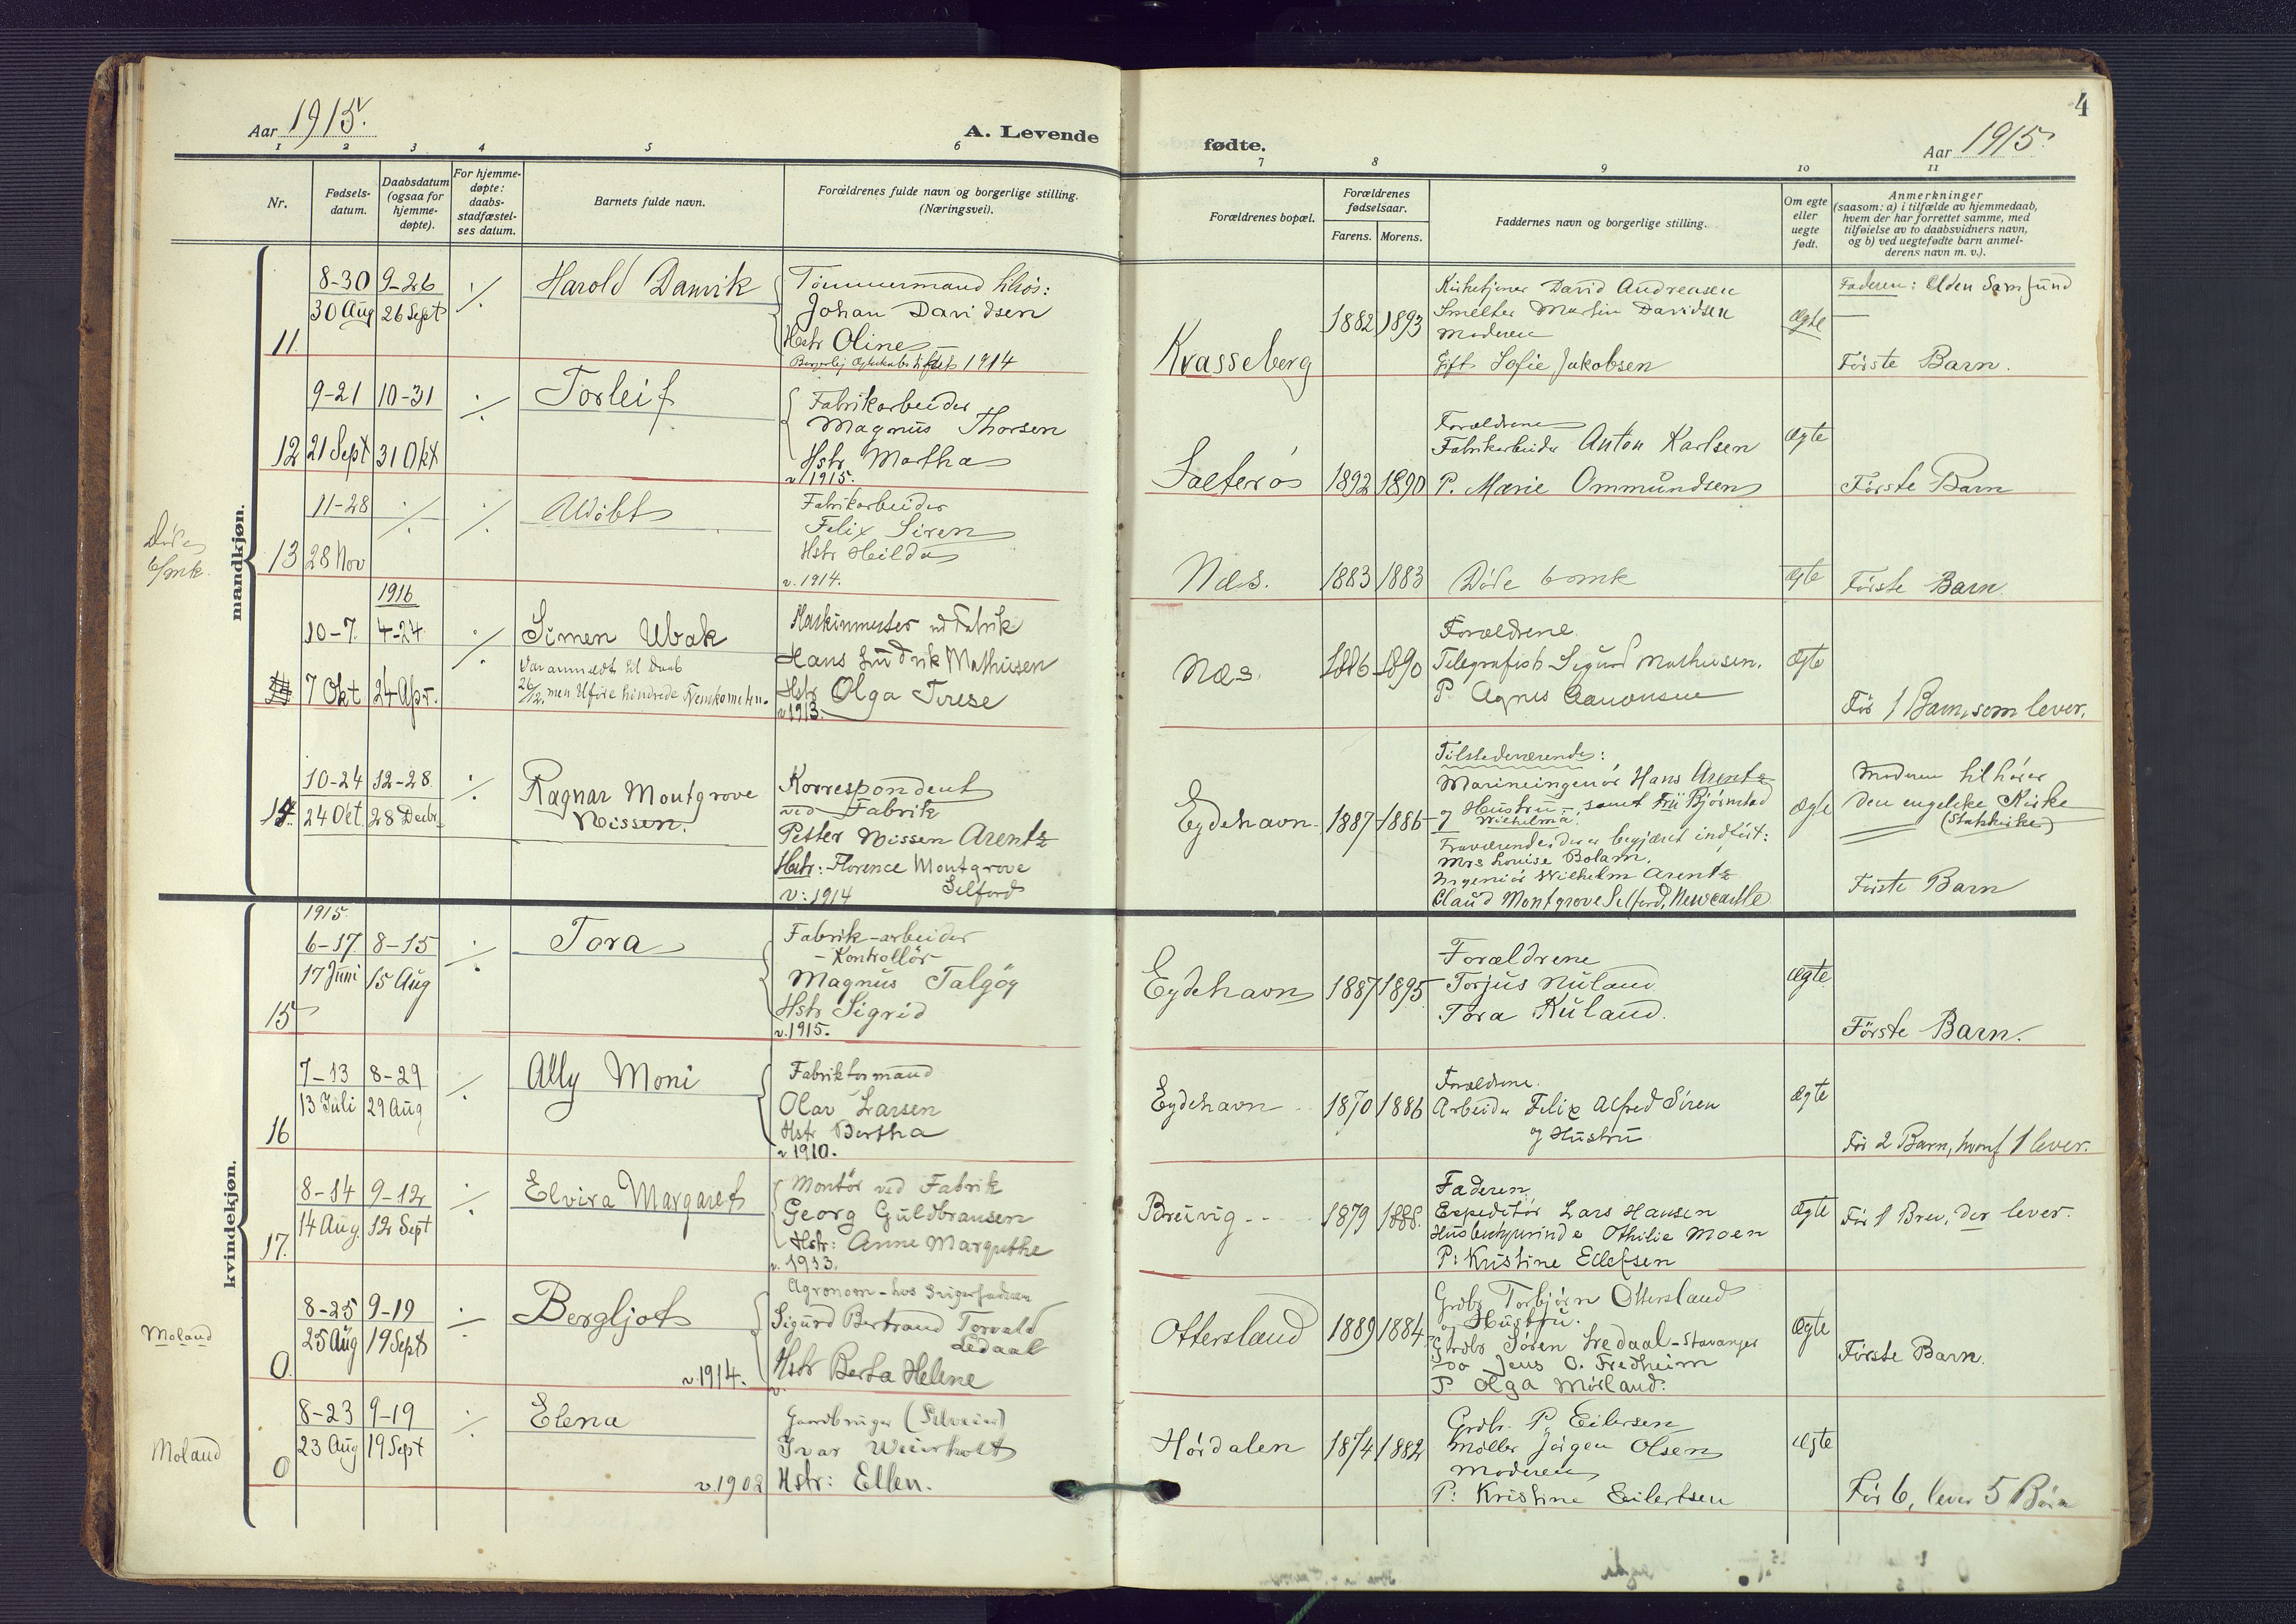 Aar 1915.
A. Levende
1 2 3 4 5 6
Nr.
Fødsels-
datum.
Daabsdatum
(ogsaa for
hjemme-
døpte).
For hjemme-
døpte:
daabs-
stadfæstel-
ses datum.
Barnets fulde navn.
Forældrenes fulde navn og borgerlige stilling.
(Næringsvei).
mandkjøn.
8-30 9-26 ./. Harold Danvik Tömmermand
30 Aug 26 Sept Johan Davidsen
11. Hstr Oline
1914
9-21 10-31 ./. Torleif Fabrikarbeider
Magnus Thorsen
12 21 Sept 31 Okt Hstr. Martha
v 1915.
11-28 ./. ./. Udöbt Fabrikarbeider
Felix Siren
Døde
13 28 Nov Hstr Hilda
v. 1914.
1916
10-7. 4-24 ./. Simen Ubak Maskinmester ved Fabrik
Var anmeldt til Daab Hans Ludvik Mathisen
7 Okt 24 Apr. 26/12. men Uføre hindrede Fremkomsten. Hstr Olga Terese
v 1913.
10-24 12-28 ./. Ragnar Montgrove Korrespondent
14. 24 Okt. 28 Decbr. Nissen. ved Fabrik
Petter Nissen Arentz
Hstr: Florence Montgrove
v: 1914 Selford
kvindekjøn.
1915.
6-17 8-15 ./. Tora Fabrik-arbeider
- Kontrollör -
17 Juni 15 Aug Magnus Talgöy
15 Hstr Sigrid
v. 1915.
7-13 8-29 ./. Ally Moni Fabrikformand
13 Juli 29 Aug Olav Larsen
16 Hstr Bertha
v 1910.
8-14 9-12 ./. Elvira Margaret Montör ved Fabrik
14 Aug. 12 Sept Georg Guldbransen
17. Hstr: Anne Margrethe
v. 1913.
Agronom - hos Svigerfaderen
8-25 9-19 ./. Bergljot Sigurd Bertrand Torvald
Moland 25 Aug 19 Sept Ledaal
0. v. 1914. Hstr Berta Helene
8-23 9-19 ./. Elena Gaardbruger (Selveier)
Moland 23 Aug 19 Sept Ivar Weierholt
0 v. 1902 Hstr: Ellen.
4
fødte.
Aar 1915.
7 8 9 10 11
Forældrenes bopæl.
Forældrenes
fødselsaar.
Farens. Morens.
Faddernes navn og borgerlige stilling.
Om egte
eller
uegte
født.
Anmerkninger
(saasom: a) i tilfælde av hjemmedaab,
hvem der har forrettet samme, med
tilføielse av to daabsvidners navn,
og b) ved uegtefødte barn anmel-
derens navn m. v.).
Kirketjener David Andreasen Faderen: Uden Samfund
Smelter Martin Davidsen
1882 1893 Moderen Ægte
Kvasseberg Gift Sofie Jakobsen Förste Barn.
Forældrene
Fabrikarbeider Anton Karlsen Ægte
Sæterös 1892 1890 P. Marie Ommundsen Förste Barn
Næs. 1883 1883 Döde Ægte Förste Barn.
Forældrene.
Næs. 1886 1890 Telegrafist Sigurd Mathisen. Ægte
P. Agnes Aanonsen
Før 1 Barn, som lever.
Tilstedeværende:
Marineingeniör Hans Arentz Moderen tilhører
Eydehavn. 1887 1886 og Hustru - samt Frü Björnstad Ægte den engelske Kirke
Wilhelma. (Statskirke)
Fraværende, der er begjæret indfört:
Mrs Louise Bolam,
Ingeniör Wilhelm Arentz
Claud Montgrove Selford, Newcastle Förste Barn
Forældrene
Eydehavn 1887 1895 Torjus Nuland Ægte.
Tora Nuland. Förste Barn.
Forældrene.
Eydehavn 1870 1886 Arbeider Felix Alfred Siren Ægte
og Hustru Før 2 Barn, hvoraf 1 lever.
Faderen
Breivig 1879 1888. Expeditör Lars Hansen Ægte Før 1 Barn, der lever.
Husbestyrerinde Othilie Moen
P: Kristine Ellefsen
Grdbr Torbjörn Ottersland
Ottersland 1889 1884 og Hustru. Ægte
Grdbr Sören Ledaal - Stavanger
Do Jens O. Fredheim Förste Barn.
P. Olga Mörland.
Grdbr. P. Eilersen
Hørdalen 1874 1882 Möller Jörgen Olsen Ægte
Moderen
P: Kristine Eilertsen Før 6, lever 5 Börn